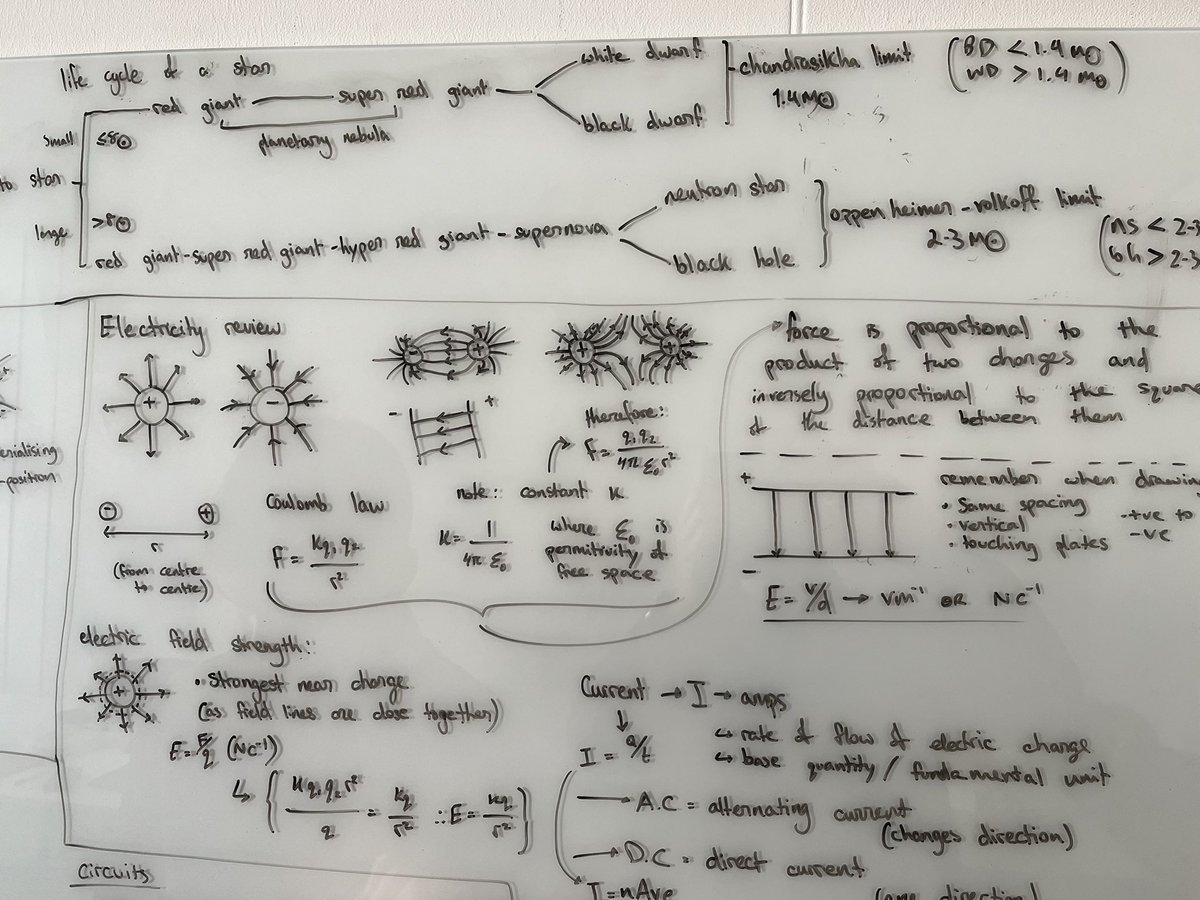 life cycle of a star
red giant — super red giant — white dwarf
chandrasikha limit
1.4M⊙
(BD < 1.4 M⊙
WD > 1.4 M⊙)
black dwarf
planetary nebula
small ≤8⊙
to star
large >8⊙
red giant-super red giant-hyper red giant-supernova
neutron star
black hole
oppenheimer-volkoff limit
2-3 M⊙
(ns < 2-3
bh > 2-3
Electricity review
+
-
-
+
+
+
-
+
therefore:
F = q₁q₂/4π ε₀r²
note: constant K
K = 1/4π ε₀
where ε₀ is
permitivity of
free space
Coulomb law
F = Kq₁q₂/r²
- +
r
(from centre
to centre)
force is proportional to the
product of two charges and
inversely proportional to the square
of the distance between them
remember when drawing
• Same spacing
• vertical
• touching plates
+ve to
-ve
+
-
E = V/d → Vm⁻¹ OR NC⁻¹
electric field strength:
+
• Strongest near charge
(as field lines are close together)
E = F/q (NC⁻¹)
↳ {Kq₁q₂r²/q = Kq/r² ∴ E = Kq/r²}
Current → I → amps
↓
I = Q/t
↳ rate of flow of electric charge
↳ base quantity / fundamental unit
→ A.C = alternating current
(changes direction)
→ D.C = direct current
(one direction)
I = nAve
Circuits
erialising
-position